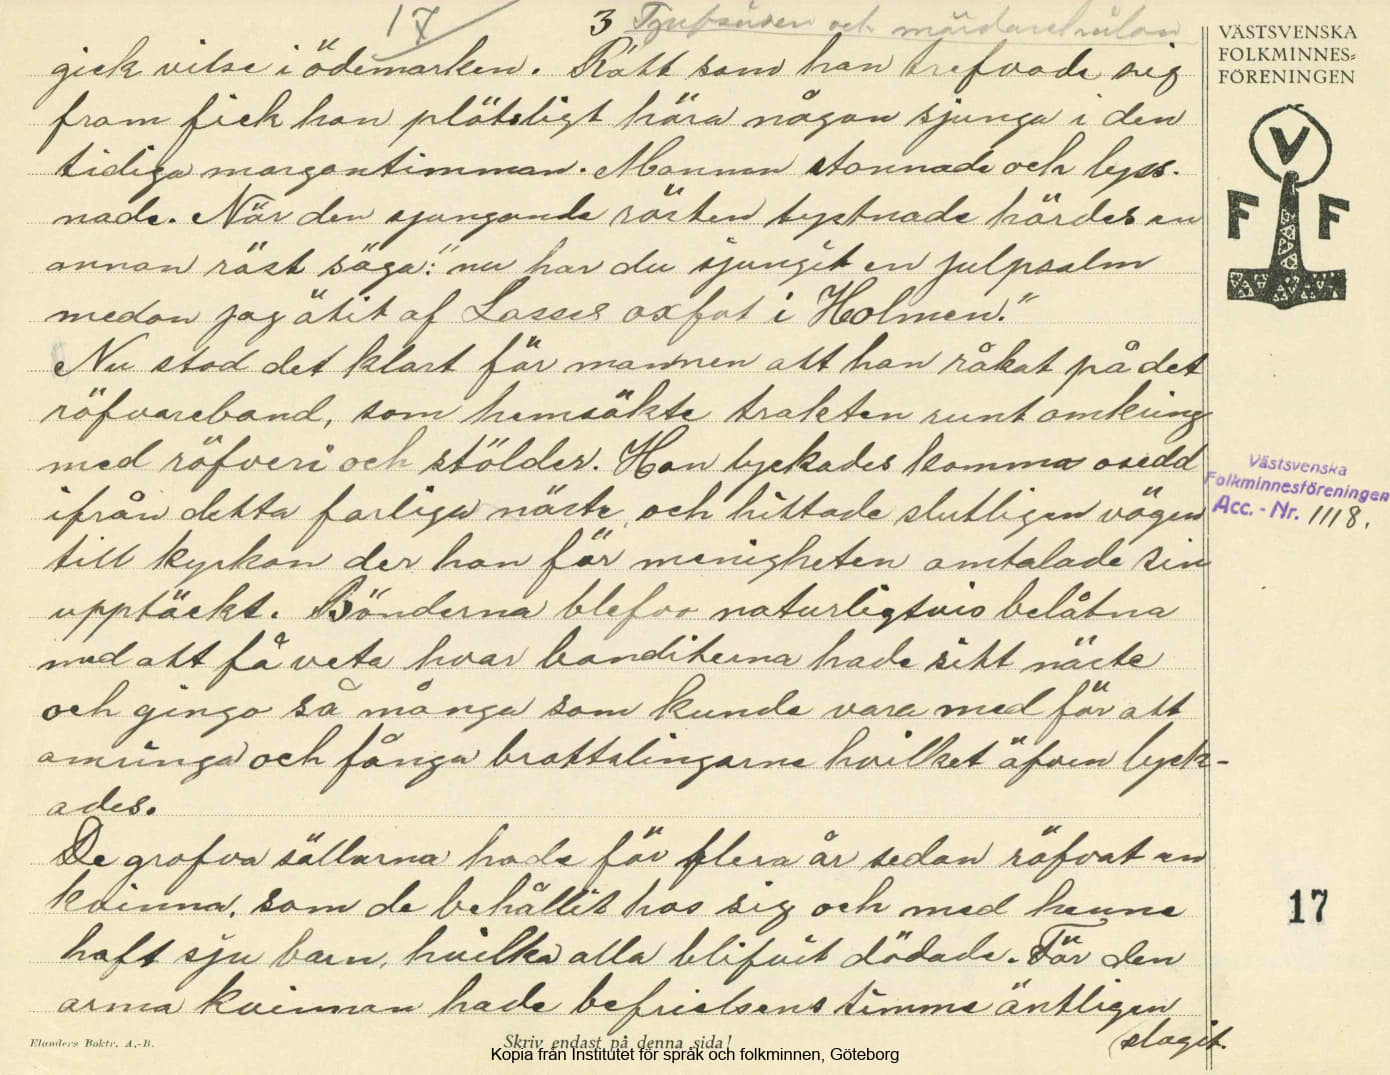 17
3 Tjufsåsen och mördarekulan
VÄSTSVENSKA
FOLKMINNES=
FÖRENINGEN
V
F F
gick vilse i ödemarken. Rätt som han trefvade sig
fram fick han plötsligt höra någon sjunga i den
tidiga morgontimman. Mannen stannade och lyss-
nade. När den sjungande rösten tystnade hördes en
annan röst säga: "nu har du sjungit en julpsalm
medan jag ätit af Lasses oxfot i Holmen."
Nu stod det klart för mannen att han råkat på det
röfvareband, som hemsökte trakten runt omkring
med röfveri och stölder. Han lyckades komma osedd
ifrån detta farliga näste och hittade slutligen vägen
till kyrkan der han för menigheten omtalade sin
upptäckt. Bönderna blefvo naturligtvis belåtna
med att få veta hvar banditerna hade sitt näste
och gingo så många som kunde vara med för att
omringa och fånga brottslingarne hvilket äfven lyck-
ades.
De grofva sällarna hade för flera år sedan röfvat en
kvinna, som de behållit hos sig och med henne
haft sju barn, hvilka alla blifvit dödade. För den
arma kvinnan hade befrielsens timme äntligen
slagit.
Västsvenska
Folkminnesföreningen
Acc. - Nr. 1118.
17
Elanders Boktr. A.-B.
Skriv endast på denna sida!
Kopia från Institutet för språk och folkminnen, Göteborg